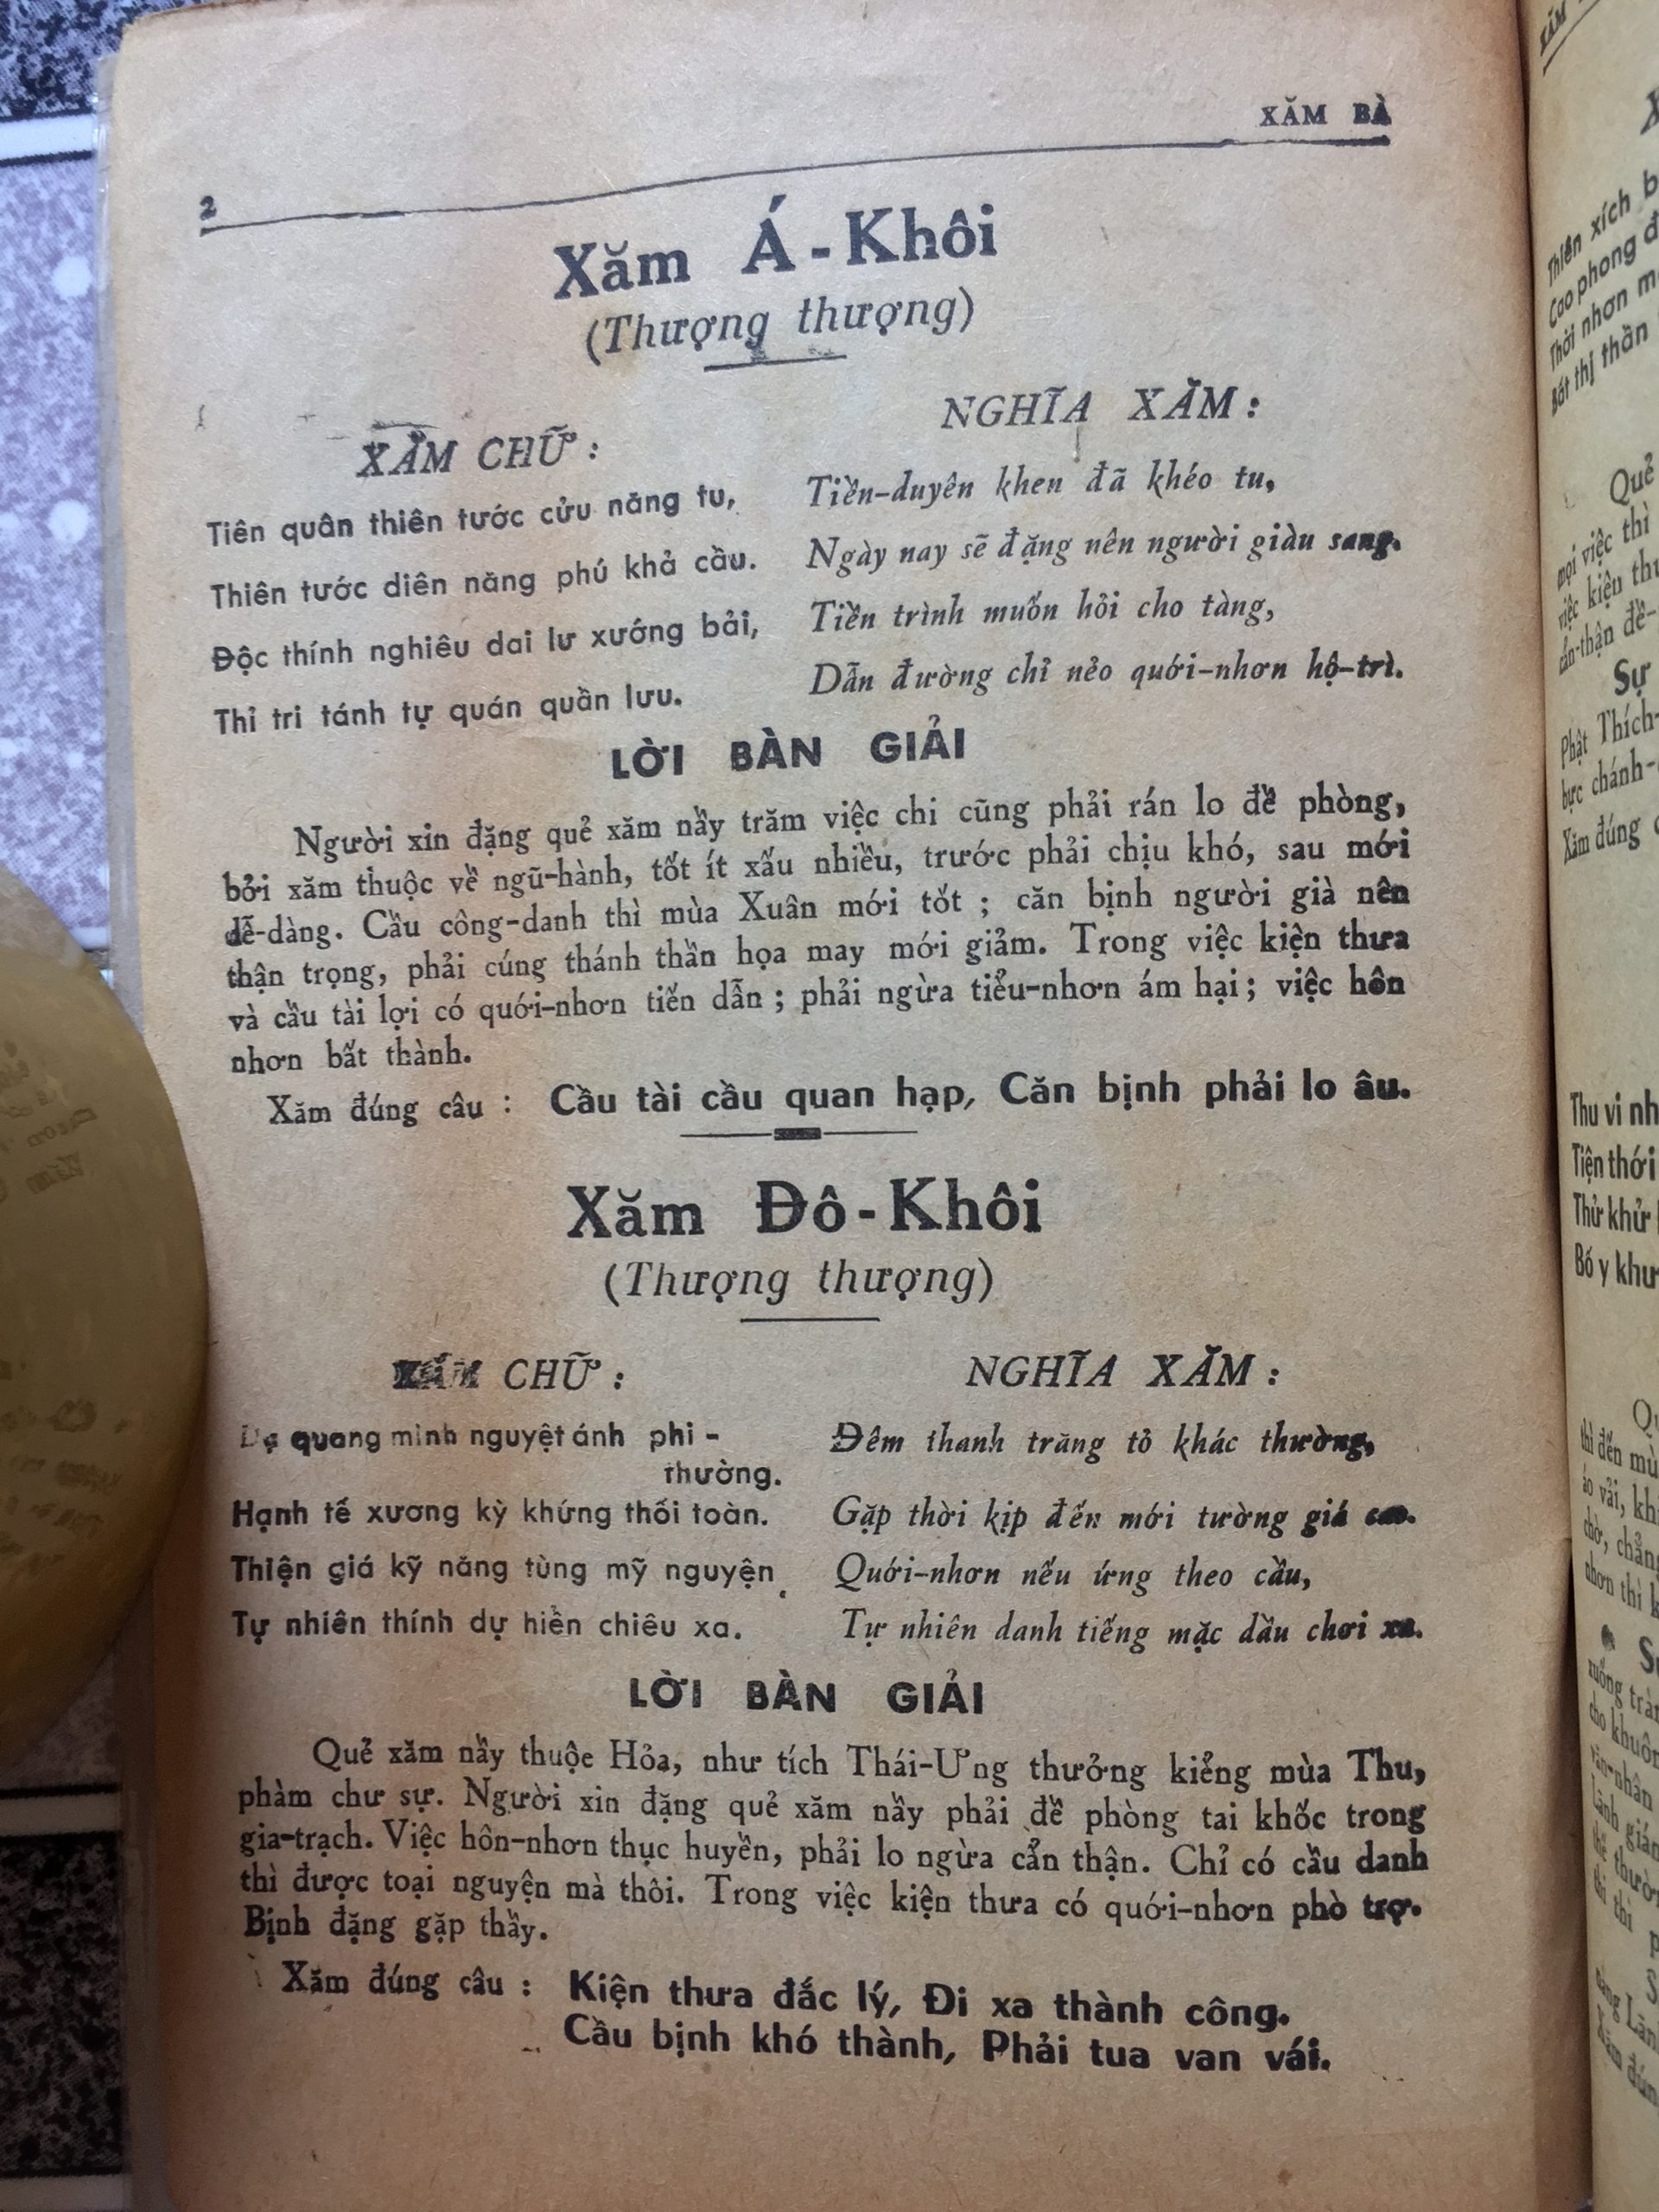 XĂM BÀ
2
Xăm Á-Khôi
(Thượng thượng)
XĂM CHỮ :
Tiên quân thiên tước cửu năng tu,
Thiên tước diên năng phú khả cầu.
Độc thính nghiêu dai lư xướng bải,
Thỉ tri tánh tự quán quần lưu.
NGHĨA XĂM :
Tiền-duyên khen đã khéo tu,
Ngày nay sẽ đặng nên người giàu sang.
Tiền trình muốn hỏi cho tàng,
Dẫn đường chỉ nẻo quới-nhơn hộ-trì.
LỜI BÀN GIẢI
Người xin đặng quẻ xăm nầy trăm việc chi cũng phải rán lo đề phòng,
bởi xăm thuộc về ngũ-hành, tốt ít xấu nhiều, trước phải chịu khó, sau mới
dễ-dàng. Cầu công-danh thì mùa Xuân mới tốt ; căn bịnh người già nên
thận trọng, phải cúng thánh thần họa may mới giảm. Trong việc kiện thưa
và cầu tài lợi có quới-nhơn tiến dẫn ; phải ngừa tiểu-nhơn ám hại ; việc hôn
nhơn bất thành.
Xăm đúng câu : Cầu tài cầu quan hạp, Căn bịnh phải lo âu.
Xăm Đô-Khôi
(Thượng thượng)
XĂM CHỮ :
Dạ quang minh nguyệt ánh phi -
thường.
Hạnh tế xương kỳ khứng thối toàn.
Thiện giá kỹ năng tùng mỹ nguyện
Tự nhiên thính dự hiển chiêu xa.
NGHĨA XĂM :
Đêm thanh trăng tỏ khác thường,
Gặp thời kịp đến mới tường giá cao.
Quới-nhơn nếu ứng theo cầu,
Tự nhiên danh tiếng mặc dầu chơi xa.
LỜI BÀN GIẢI
Quẻ xăm nầy thuộc Hỏa, như tích Thái-Ưng thưởng kiểng mùa Thu,
phàm chư sự. Người xin đặng quẻ xăm nầy phải đề phòng tai khốc trong
gia-trạch. Việc hôn-nhơn thục huyền, phải lo ngừa cẩn thận. Chỉ có cầu danh
thì được toại nguyện mà thôi. Trong việc kiện thưa có quới-nhơn phò trợ.
Bịnh đặng gặp thầy.
Xăm đúng câu : Kiện thưa đắc lý, Đi xa thành công.
Cầu bịnh khó thành, Phải tua van vái.
XĂM
Thiên xích
Cao phong
Thời nhơn
Bất thị thần
Quẻ
mọi việc thì
việc kiện
cẩn-thận đề-
Sự
Phật Thích-
bực chánh-
Xăm đúng
Thu vi
Tiện thới
Thử khử
Bố y
thì đến
áo vải,
chờ,
nhơn thì